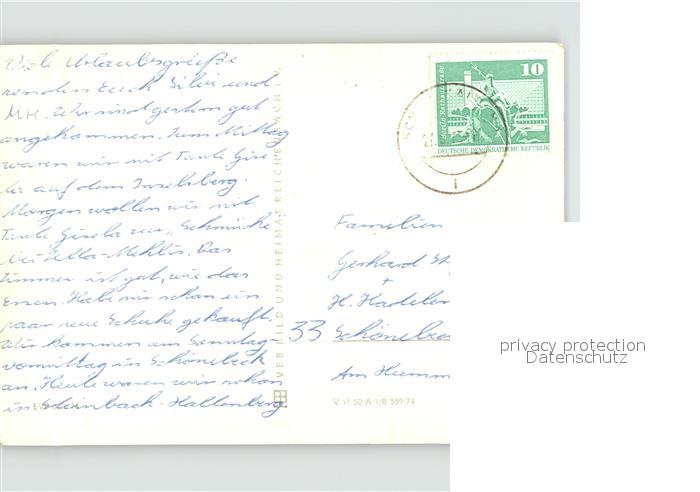 Viele Urlaubsgrüße
senden Euch Silvi und
Wir sind gestern gut
angekommen. Zum Mittag
waren wir mit Tante Gise
la auf dem Inselsberg.
Morgen wollen wir mit
Tante Gisela zur Schmücke
bei Zella-Mehlis. Das
Zimmer ist gut, wie das
Essen. Habe mir schon ein
paar neue Schuhe gekauft.
Wir kommen am Sonntag
vormittag in Schönebeck
an. Heute waren wir schon
in Steinbach-Hallenberg.
VEB BILD UND HEIMAT REICHENBACH I.V.
10
Berlin-Rathausstraße
DEUTSCHE DEMOKRATISCHE REPUBLIK
Familien
Gerhard
+
H.
33 Schönebe
Am Humm
V 11 50 A 1/B 559/74
privacy protection
Datenschutz